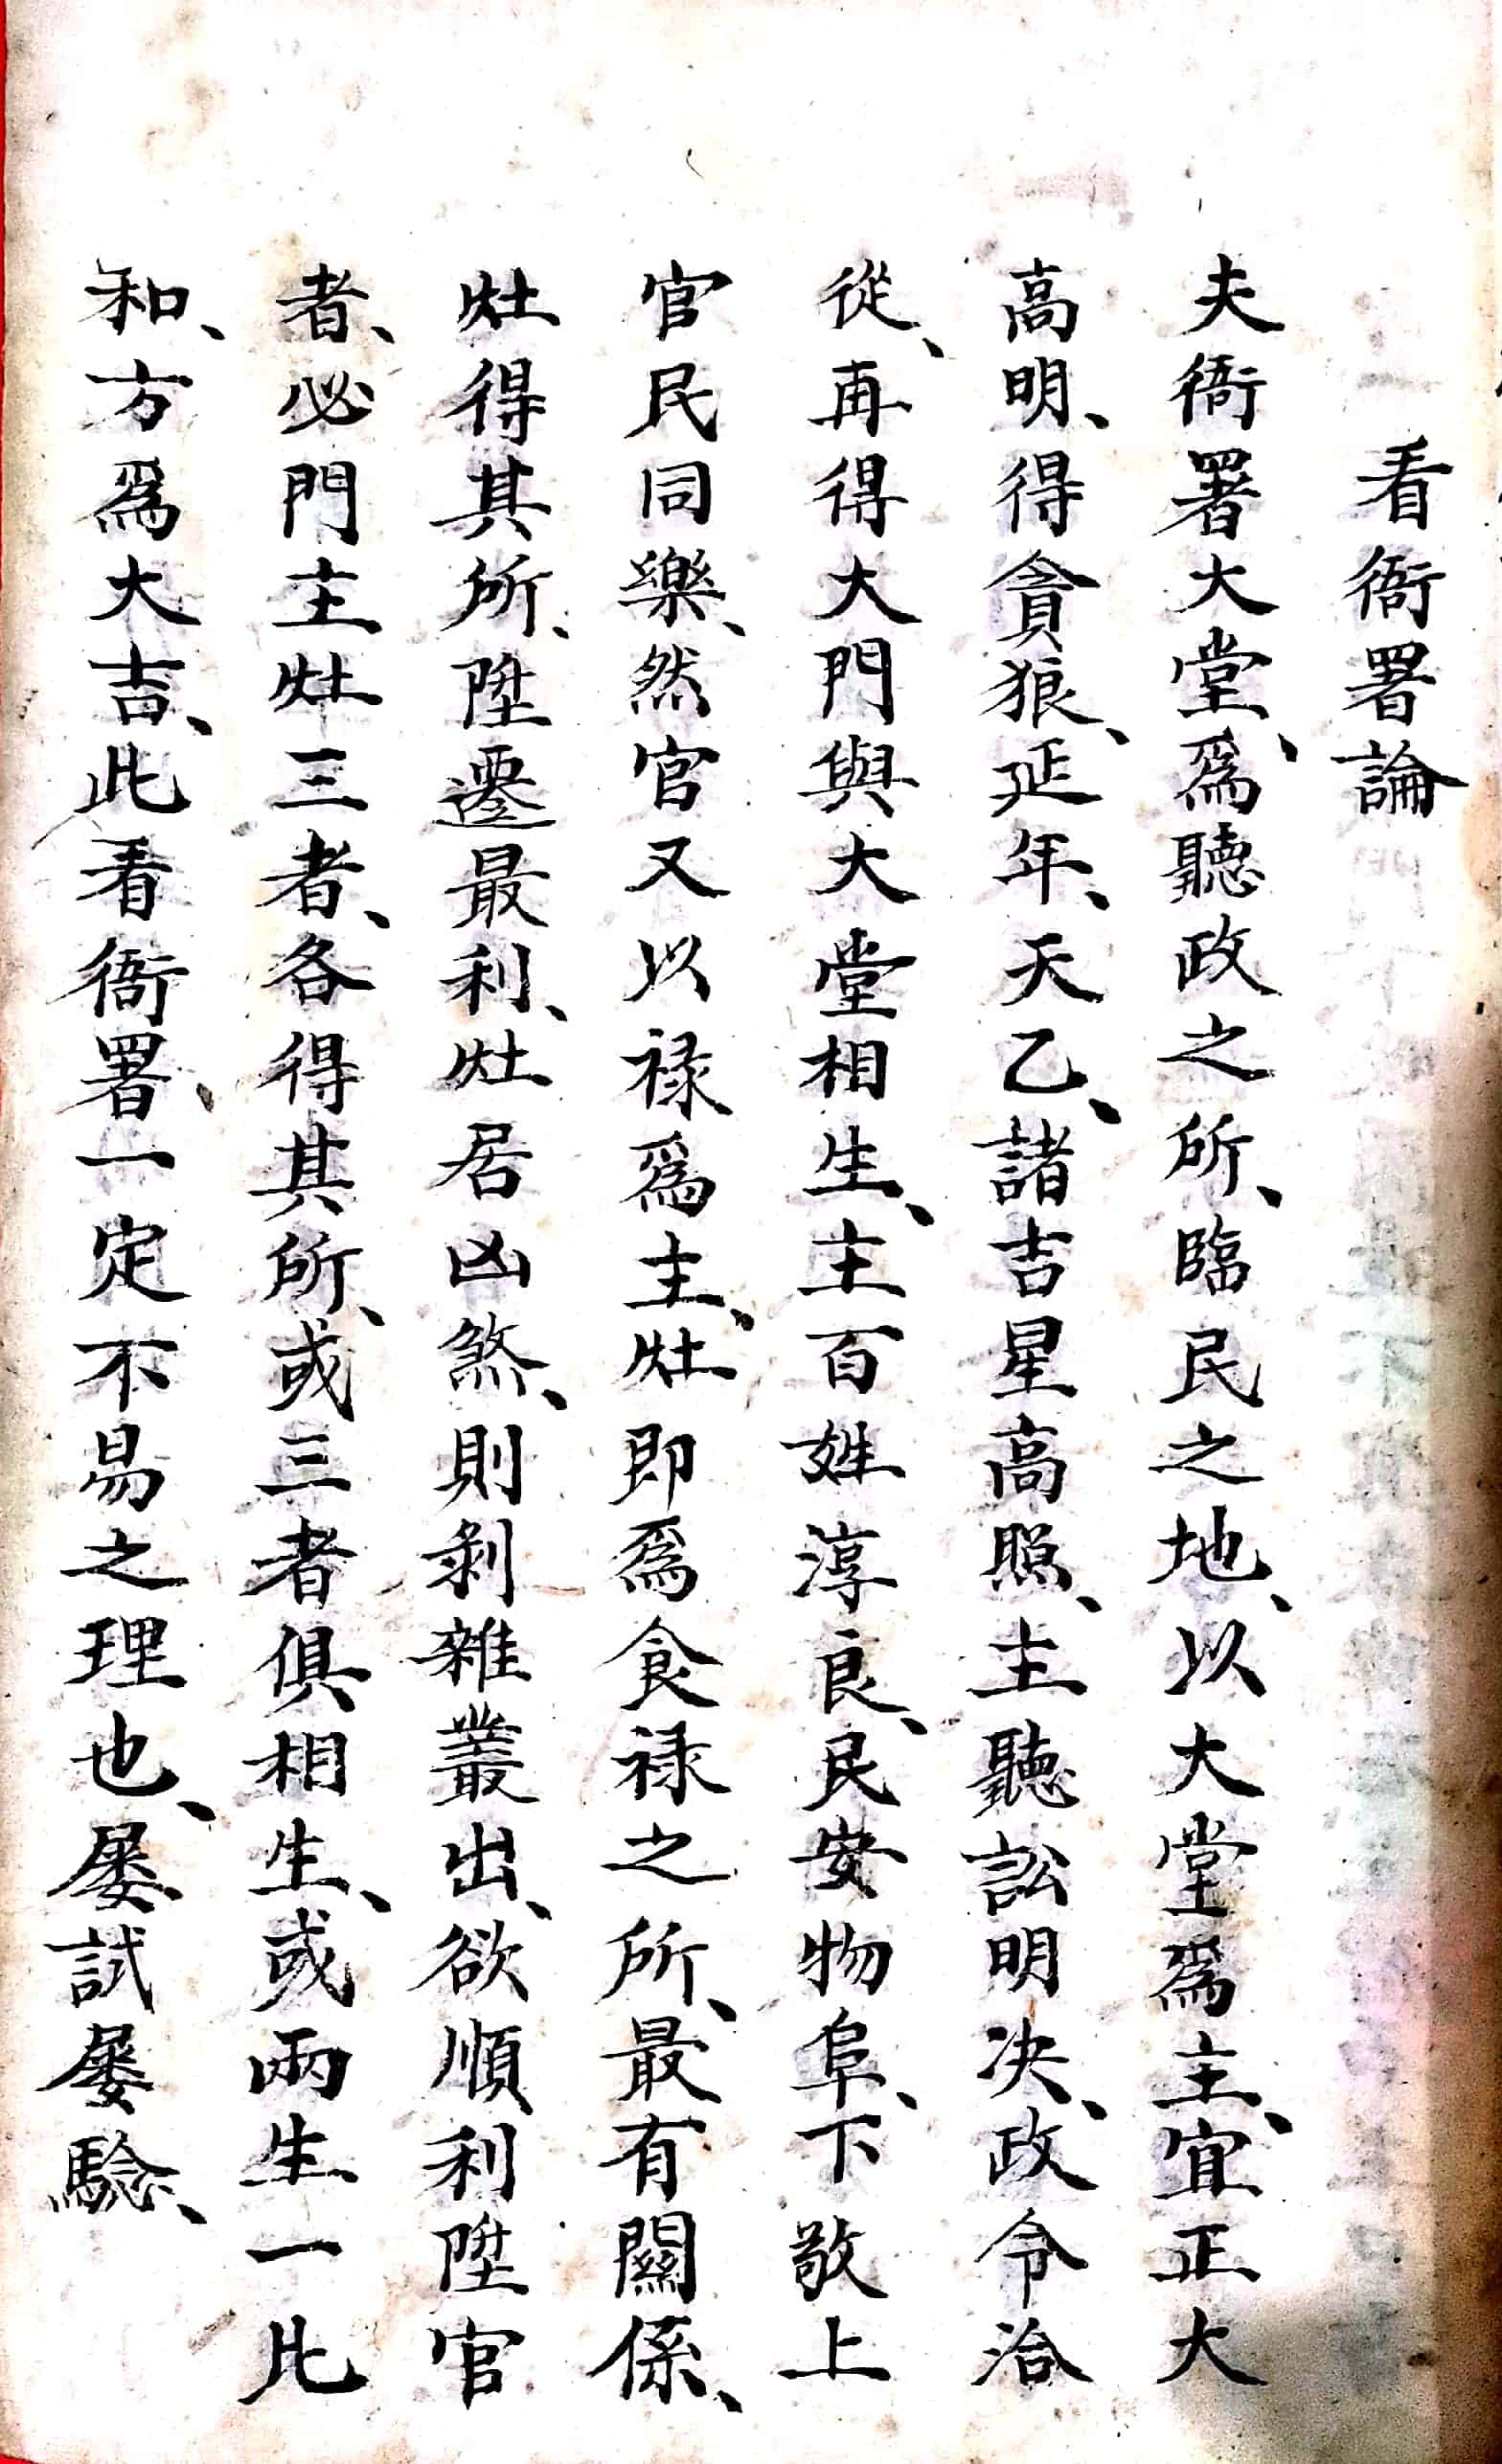 看衙署論
夫衙署大堂、爲聽政之所、臨民之地、以大堂爲主、宜正大
高明、得貪狼、延年、天乙、諸吉星高照、主聽訟明决、政令洽
從、再得大門與大堂相生、主百姓淳良、民安物阜、下敬上
官民同樂、然官又以禄爲主、灶即爲食禄之所、最有關係、
灶得其所、陞遷最利、灶居凶煞、則剝雜叢出、欲順利陞官
者、必門主灶三者、各得其所、或三者俱相生、或兩生一比
和、方爲大吉、此看衙署、一定不易之理也、屢試屢驗、